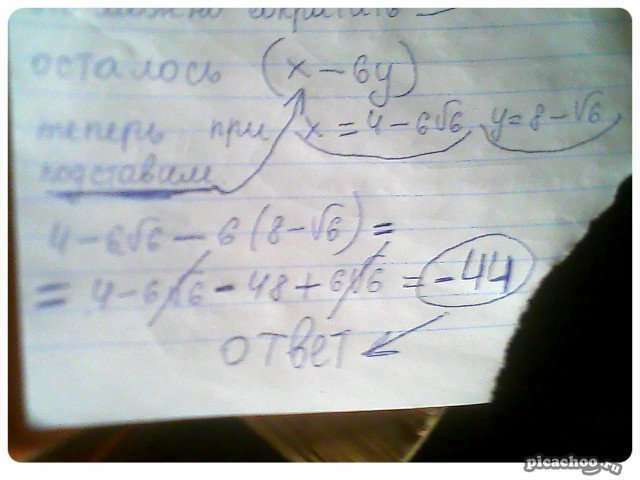 можно сократить
осталось (x-6y)
теперь при x=4-6√6, y=8-√6,
подставим
4-6√6-6(8-√6)=
=4-6√6-48+6√6=-44
ответ
picachoo.ru